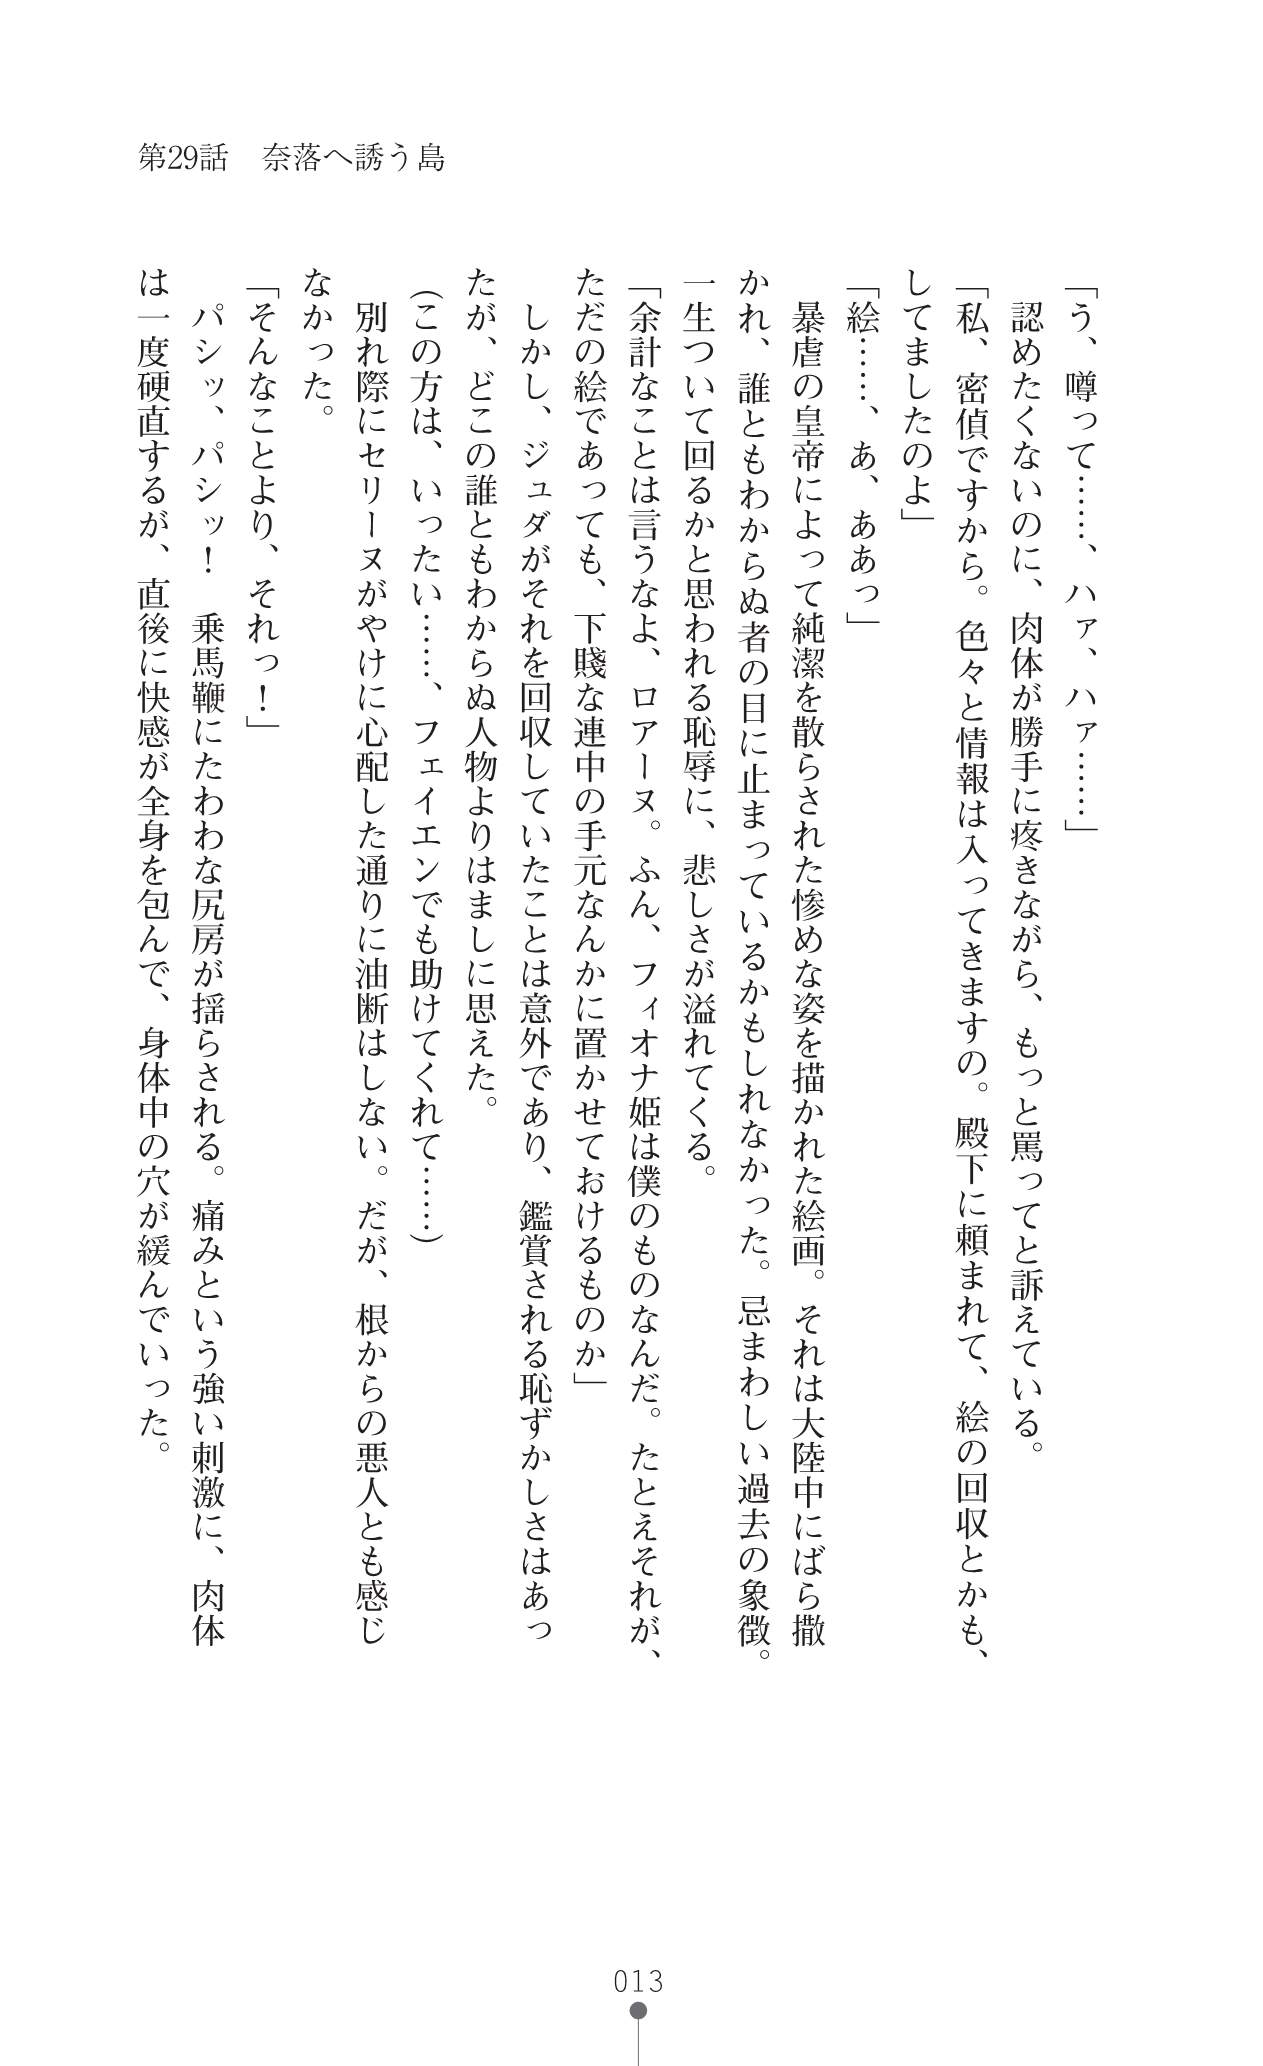 第29話　奈落へ誘う島
「う、噂って……、ハァ、ハァ……」
　認めたくないのに、肉体が勝手に疼きながら、もっと罵ってと訴えている。
「私、密偵ですから。色々と情報は入ってきますの。殿下に頼まれて、絵の回収とかも、
してましたのよ」
「絵……、あ、ああっ」
　暴虐の皇帝によって純潔を散らされた惨めな姿を描かれた絵画。それは大陸中にばら撒
かれ、誰ともわからぬ者の目に止まっているかもしれなかった。忌まわしい過去の象徴。
一生ついて回るかと思われる恥辱に、悲しさが溢れてくる。
「余計なことは言うなよ、ロアーヌ。ふん、フィオナ姫は僕のものなんだ。たとえそれが、
ただの絵であっても、下賤な連中の手元なんかに置かせておけるものか」
　しかし、ジュダがそれを回収していたことは意外であり、鑑賞される恥ずかしさはあっ
たが、どこの誰ともわからぬ人物よりはましに思えた。
（この方は、いったい……、フェイエンでも助けてくれて……）
　別れ際にセリーヌがやけに心配した通りに油断はしない。だが、根からの悪人とも感じ
なかった。
「そんなことより、それっ！」
　パシッ、パシッ！　乗馬鞭にたわわな尻房が揺らされる。痛みという強い刺激に、肉体
は一度硬直するが、直後に快感が全身を包んで、身体中の穴が緩んでいった。
013